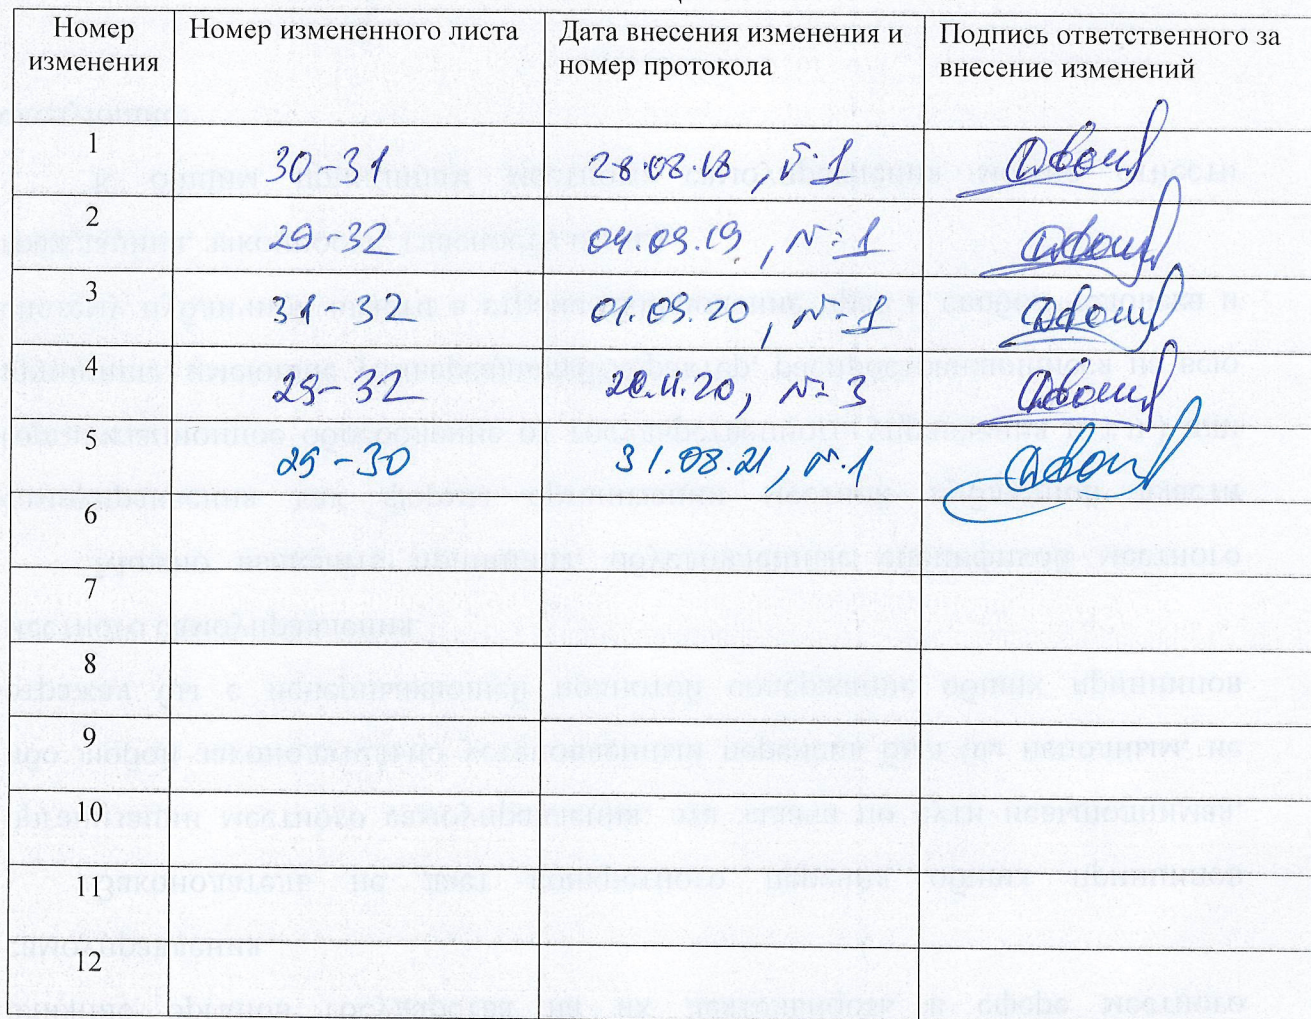 Номер изменения Номер измененного листа Дата внесения изменения и номер протокола Подпись ответственного за внесение изменений
1 30-31 28.08.18, №1
2 29-32 04.09.19, №1
3 31-32 01.09.20, №1
4 29-32 20.11.20, №3
5 29-30 31.08.21, №1
6
7
8
9
10
11
12